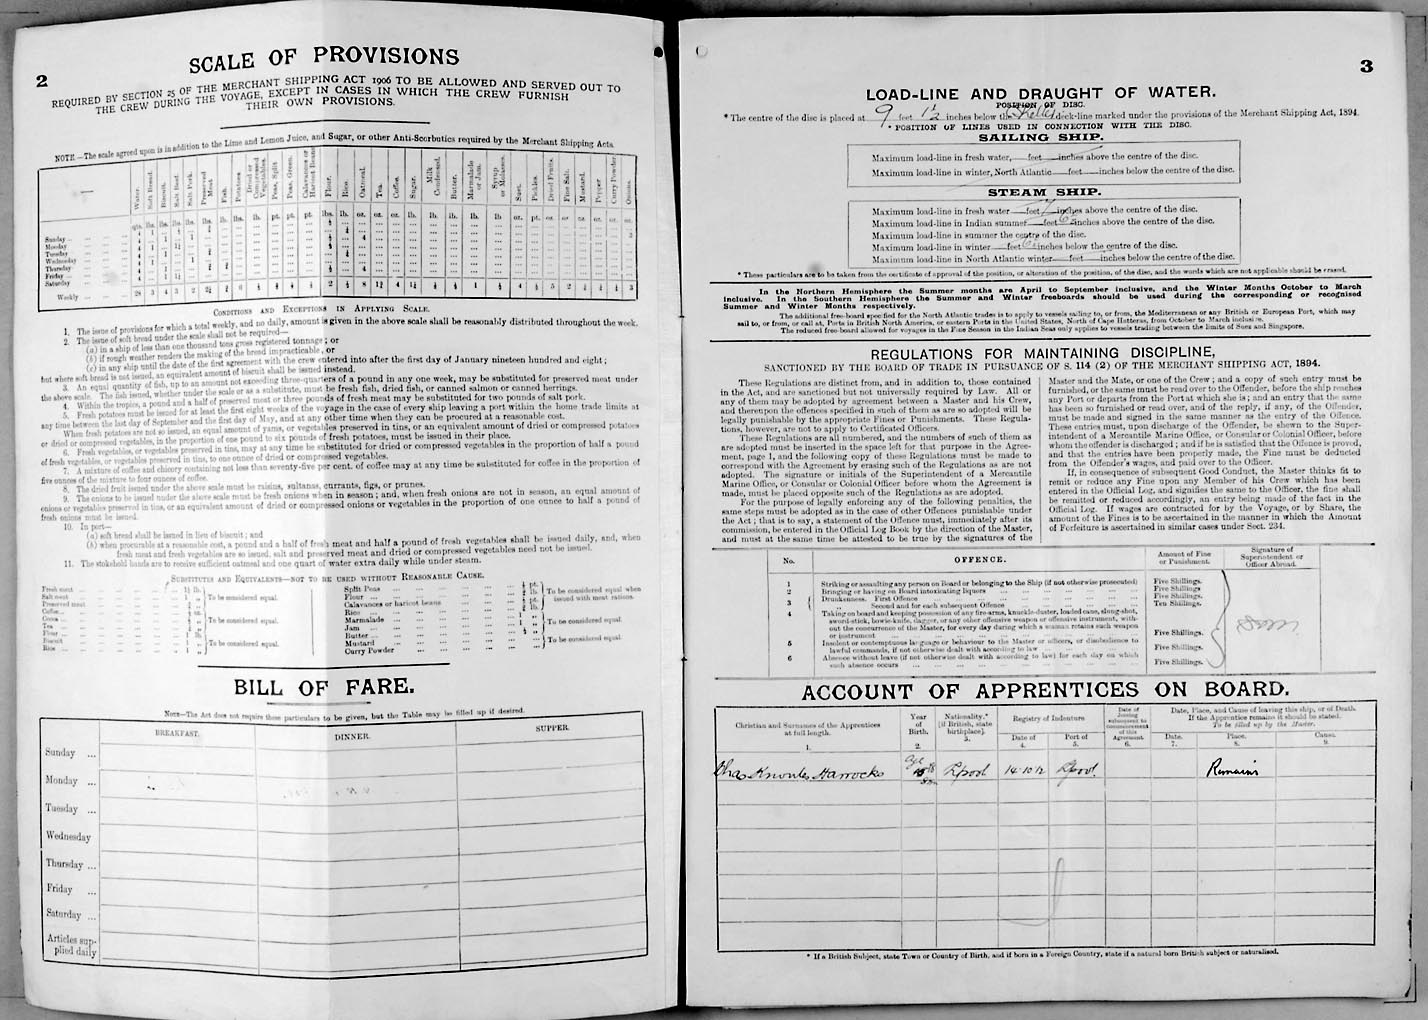 2
SCALE OF PROVISIONS
REQUIRED BY SECTION 25 OF THE MERCHANT SHIPPING ACT 1906 TO BE ALLOWED AND SERVED OUT TO
THE CREW DURING THE VOYAGE, EXCEPT IN CASES IN WHICH THE CREW FURNISH
THEIR OWN PROVISIONS.
NOTE.—The scale agreed upon is in addition to the Lime and Lemon Juice, and Sugar, or other Anti-Scorbutics required by the Merchant Shipping Acts.
Water. Soft Bread. Biscuit. Salt Beef. Salt Pork. Preserved Meat. Fish. Potatoes. Dried or Compressed Vegetables. Peas, Split. Peas, Green. Calavances or Haricot Beans. Flour. Rice. Oatmeal. Tea. Coffee. Sugar. Milk Condensed. Butter. Marmalade or Jam. Syrup or Molasses. Suet. Pickles. Dried Fruits. Fine Salt. Mustard. Pepper. Curry Powder. Onions.
Sunday
Monday
Tuesday
Wednesday
Thursday
Friday
Saturday
Weekly
CONDITIONS AND EXCEPTIONS IN APPLYING SCALE.
1. The issue of provisions for which a total weekly, and no daily, amount is given in the above scale shall be reasonably distributed throughout the week.
2. The issue of soft bread under the scale shall not be required—
(a) in a ship of less than one thousand tons gross registered tonnage; or
(b) if rough weather renders the making of the bread impracticable, or
(c) in any ship until the date of the first agreement with the crew entered into after the first day of January nineteen hundred and eight;
but where soft bread is not issued, an equivalent amount of biscuit shall be issued instead.
3. An equal quantity of fish, up to an amount not exceeding three-quarters of a pound in any one week, may be substituted for preserved meat under
the above scale. The fish issued, whether under the scale or as a substitute, must be fresh fish, dried fish, or canned salmon or canned herrings.
4. Within the tropics, a pound and a half of preserved meat or three pounds of fresh meat may be substituted for two pounds of salt pork.
5. Fresh potatoes must be issued for at least the first eight weeks of the voyage in the case of every ship leaving a port within the home trade limits at
any time between the last day of September and the first day of May, and at any other time when they can be procured at a reasonable cost.
When fresh potatoes are not so issued, an equal amount of yams, or vegetables preserved in tins, or an equivalent amount of dried or compressed potatoes
or dried or compressed vegetables, in the proportion of one pound to six pounds of fresh potatoes, must be issued in their place.
6. Fresh vegetables, or vegetables preserved in tins, may at any time be substituted for dried or compressed vegetables in the proportion of half a pound
of fresh vegetables, or vegetables preserved in tins, to one ounce of dried or compressed vegetables.
7. A mixture of coffee and chicory containing not less than seventy-five per cent. of coffee may at any time be substituted for coffee in the proportion of
five ounces of the mixture to four ounces of coffee.
8. The dried fruit issued under the above scale must be raisins, sultanas, currants, figs, or prunes.
9. The onions to be issued under the above scale must be fresh onions when in season; and, when fresh onions are not in season, an equal amount of
onions or vegetables preserved in tins, or an equivalent amount of dried or compressed onions or vegetables in the proportion of one ounce to half a pound of
fresh onions must be issued.
10. In port—
(a) soft bread shall be issued in lieu of biscuit; and
(b) when procurable at a reasonable cost, a pound and a half of fresh meat and half a pound of fresh vegetables shall be issued daily, and, when
fresh meat and fresh vegetables are so issued, salt and preserved meat and dried or compressed vegetables need not be issued.
11. The stokehold hands are to receive sufficient oatmeal and one quart of water extra daily while under steam.
SUBSTITUTES AND EQUIVALENTS—NOT TO BE USED WITHOUT REASONABLE CAUSE.
Fresh meat
Salt meat
Preserved meat
To be considered equal.
Coffee
Cocoa
Tea
To be considered equal.
Flour
Biscuit
Rice
To be considered equal.
Split Peas
Flour
Calavances or haricot beans
Rice
To be considered equal when issued with meat rations.
Marmalade
Jam
Butter
To be considered equal.
Mustard
Curry Powder
To be considered equal.
BILL OF FARE.
NOTE—The Act does not require these particulars to be given, but the Table may be filled up if desired.
BREAKFAST. DINNER. SUPPER.
Sunday ...
Monday ...
Tuesday ...
Wednesday
Thursday ...
Friday ...
Saturday ...
Articles sup-
plied daily
3
LOAD-LINE AND DRAUGHT OF WATER.
POSITION OF DISC.
* The centre of the disc is placed at 9 feet 1½ inches below the Shelter deck-line marked under the provisions of the Merchant Shipping Act, 1894.
* POSITION OF LINES USED IN CONNECTION WITH THE DISC.
SAILING SHIP.
Maximum load-line in fresh water, feet inches above the centre of the disc.
Maximum load-line in winter, North Atlantic feet inches below the centre of the disc.
STEAM SHIP.
Maximum load-line in fresh water feet 7 inches above the centre of the disc.
Maximum load-line in Indian summer feet 6 inches above the centre of the disc.
Maximum load-line in summer the centre of the disc.
Maximum load-line in winter feet 6 inches below the centre of the disc.
Maximum load-line in North Atlantic winter feet inches below the centre of the disc.
* These particulars are to be taken from the certificate of approval of the position, or alteration of the position, of the disc, and the words which are not applicable should be erased.
In the Northern Hemisphere the Summer months are April to September inclusive, and the Winter Months October to March
inclusive. In the Southern Hemisphere the Summer and Winter freeboards should be used during the corresponding or recognised
Summer and Winter Months respectively.
The additional free-board specified for the North Atlantic trades is to apply to vessels sailing to, or from, the Mediterranean or any British or European Port, which may
sail to, or from, or call at, Ports in British North America, or eastern Ports in the United States, North of Cape Hatteras, from October to March inclusive.
The reduced free-board allowed for voyages in the Fine Season in the Indian Seas only applies to vessels trading between the limits of Suez and Singapore.
REGULATIONS FOR MAINTAINING DISCIPLINE,
SANCTIONED BY THE BOARD OF TRADE IN PURSUANCE OF S. 114 (2) OF THE MERCHANT SHIPPING ACT, 1894.
These Regulations are distinct from, and in addition to, those contained
in the Act, and are sanctioned but not universally required by Law. All or
any of them may be adopted by agreement between a Master and his Crew,
and thereupon the offences specified in such of them as are so adopted will be
legally punishable by the appropriate Fines or Punishments. These Regula-
tions, however, are not to apply to Certificated Officers.
These Regulations are all numbered, and the numbers of such of them as
are adopted must be inserted in the space left for that purpose in the Agree-
ment, page 1, and the following copy of these Regulations must be made to
correspond with the Agreement by erasing such of the Regulations as are not
adopted. The signature or initials of the Superintendent of a Mercantile
Marine Office, or Consular or Colonial Officer before whom the Agreement is
made, must be placed opposite such of the Regulations as are adopted.
For the purpose of legally enforcing any of the following penalties, the
same steps must be adopted as in the case of other Offences punishable under
the Act; that is to say, a statement of the Offence must, immediately after its
commission, be entered in the Official Log Book by the direction of the Master,
and must at the same time be attested to be true by the signatures of the
Master and the Mate, or one of the Crew; and a copy of such entry must be
furnished, or the same must be read over to the Offender, before the ship reaches
any Port or departs from the Port at which she is; and an entry that the same
has been so furnished or read over, and of the reply, if any, of the Offender,
must be made and signed in the same manner as the entry of the Offence.
These entries must, upon discharge of the Offender, be shewn to the Super-
intendent of a Mercantile Marine Office, or Consular or Colonial Officer, before
whom the offender is discharged; and if he is satisfied that the Offence is proved,
and that the entries have been properly made, the Fine must be deducted
from the Offender's wages, and paid over to the Officer.
If, in consequence of subsequent Good Conduct, the Master thinks fit to
remit or reduce any Fine upon any Member of his Crew which has been
entered in the Official Log, and signifies the same to the Officer, the fine shall
be remitted or reduced accordingly, an entry being made of the fact in the
Official Log. If wages are contracted for by the Voyage, or by Share, the
amount of the Fines is to be ascertained in the manner in which the Amount
of Forfeiture is ascertained in similar cases under Sect. 234.
No. OFFENCE. Amount of Fine or Punishment. Signature of Superintendent or Officer Abroad.
1 Striking or assaulting any person on Board or belonging to the Ship (if not otherwise prosecuted) Five Shillings.
2 Bringing or having on Board intoxicating liquors Five Shillings.
3 Drunkenness. First Offence Five Shillings.
Second and for each subsequent Offence Ten Shillings.
4 Taking on board and keeping possession of any fire-arms, knuckle-duster, loaded cane, slung-shot,
sword-stick, bowie-knife, dagger, or any other offensive weapon or offensive instrument, with-
out the concurrence of the Master, for every day during which a seaman retains such weapon
or instrument Five Shillings.
5 Insolent or contemptuous language or behaviour to the Master or officers, or disobedience to
lawful commands, if not otherwise dealt with according to law Five Shillings.
6 Absence without leave (if not otherwise dealt with according to law) for each day on which
such absence occurs Five Shillings.
ACCOUNT OF APPRENTICES ON BOARD.
Christian and Surnames of the Apprentices at full length. 1.
Year of Birth. 2.
Nationality.* [if British, state birthplace]. 3.
Registry of Indenture
Date of 4.
Port of 5.
Date of Joining subsequent to commencement of this Agreement. 6.
Date, Place, and Cause of leaving this ship, or of Death.
If the Apprentice remains it should be stated.
To be filled up by the Master.
Date. 7.
Place. 8.
Cause. 9.
Chas Knowles Harrocks Age 18 L'pool 14·10·12 L'pool. Remains
* If a British Subject, state Town or Country of Birth, and if born in a Foreign Country, state if a natural born British subject or naturalised.